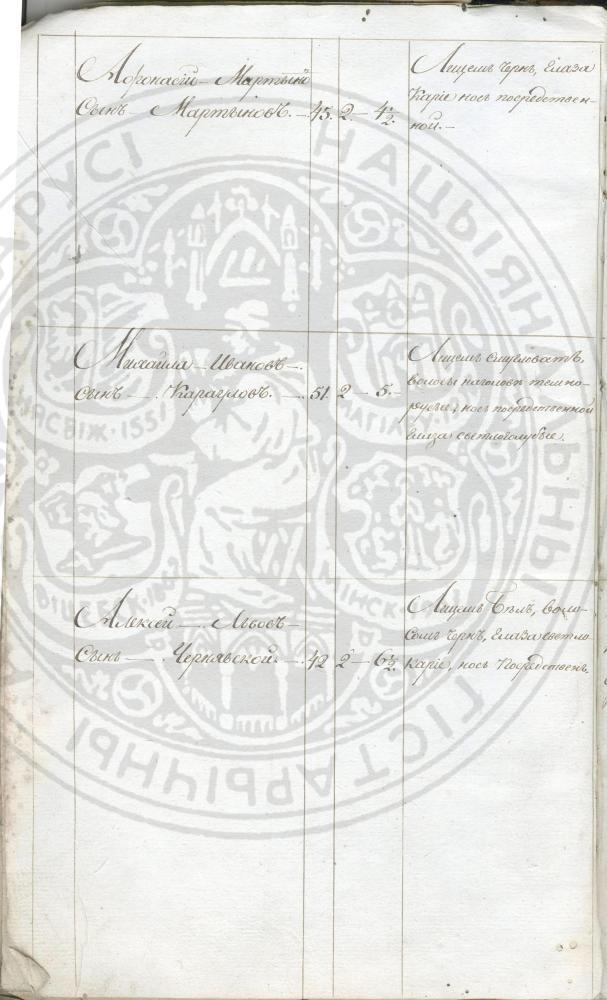 Афонасий Мартынов
Сынъ Мартыновъ. 45. 2 4½.
Лицемъ чернъ, глаза
карие носъ посредствен-
ной.
Михайла Ивановъ
сынъ 51. 2 5.
Лицемъ смугловатъ,
волосы наголовѣ темно-
русые, носъ посредственной
глаза светлоголубые.
Алексей Львовъ
Сынъ Чернявской. 42 2 6½.
Лицемъ бѣлъ, воло-
сомъ чернъ, глаза светло
карие, носъ посредственъ.
НАЦЫЯН ЛЬНЫ
ГІСТАРЫЧНЫ
АРУСІ
МІНСК